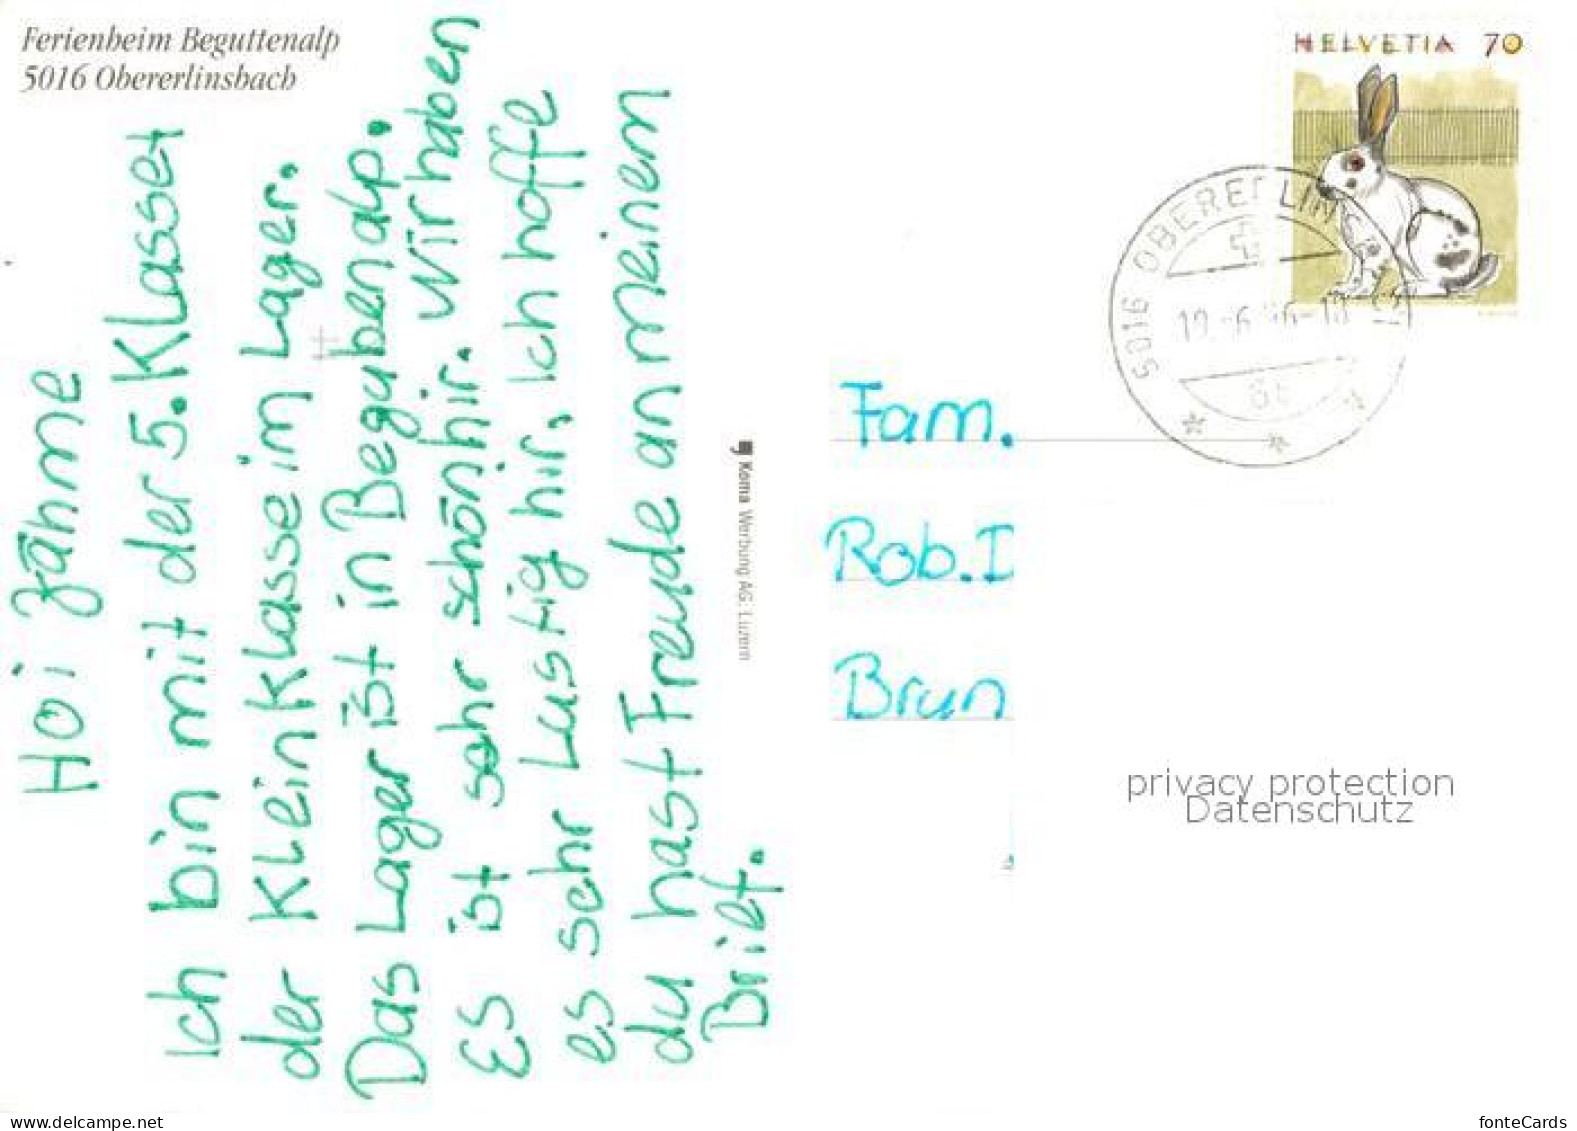 Ferienheim Beguttenalp
5016 Obererlinsbach
Hoi Jähme
Ich bin mit der 5. Klasset
der Kleinklasse im Lager.
Das Lager ist in Begubenalp.
Es ist sehr schön hir. Wir haben
es sehr Lustig hir, Ich hoffe
du hast Freude an meinem
Brief.
Koma Werbung AG, Luzern
HELVETIA 70
5016 OBERERLIN
Fam.
Rob. I
Brun
privacy protection
Datenschutz
www.delcampe.net
fonteCards